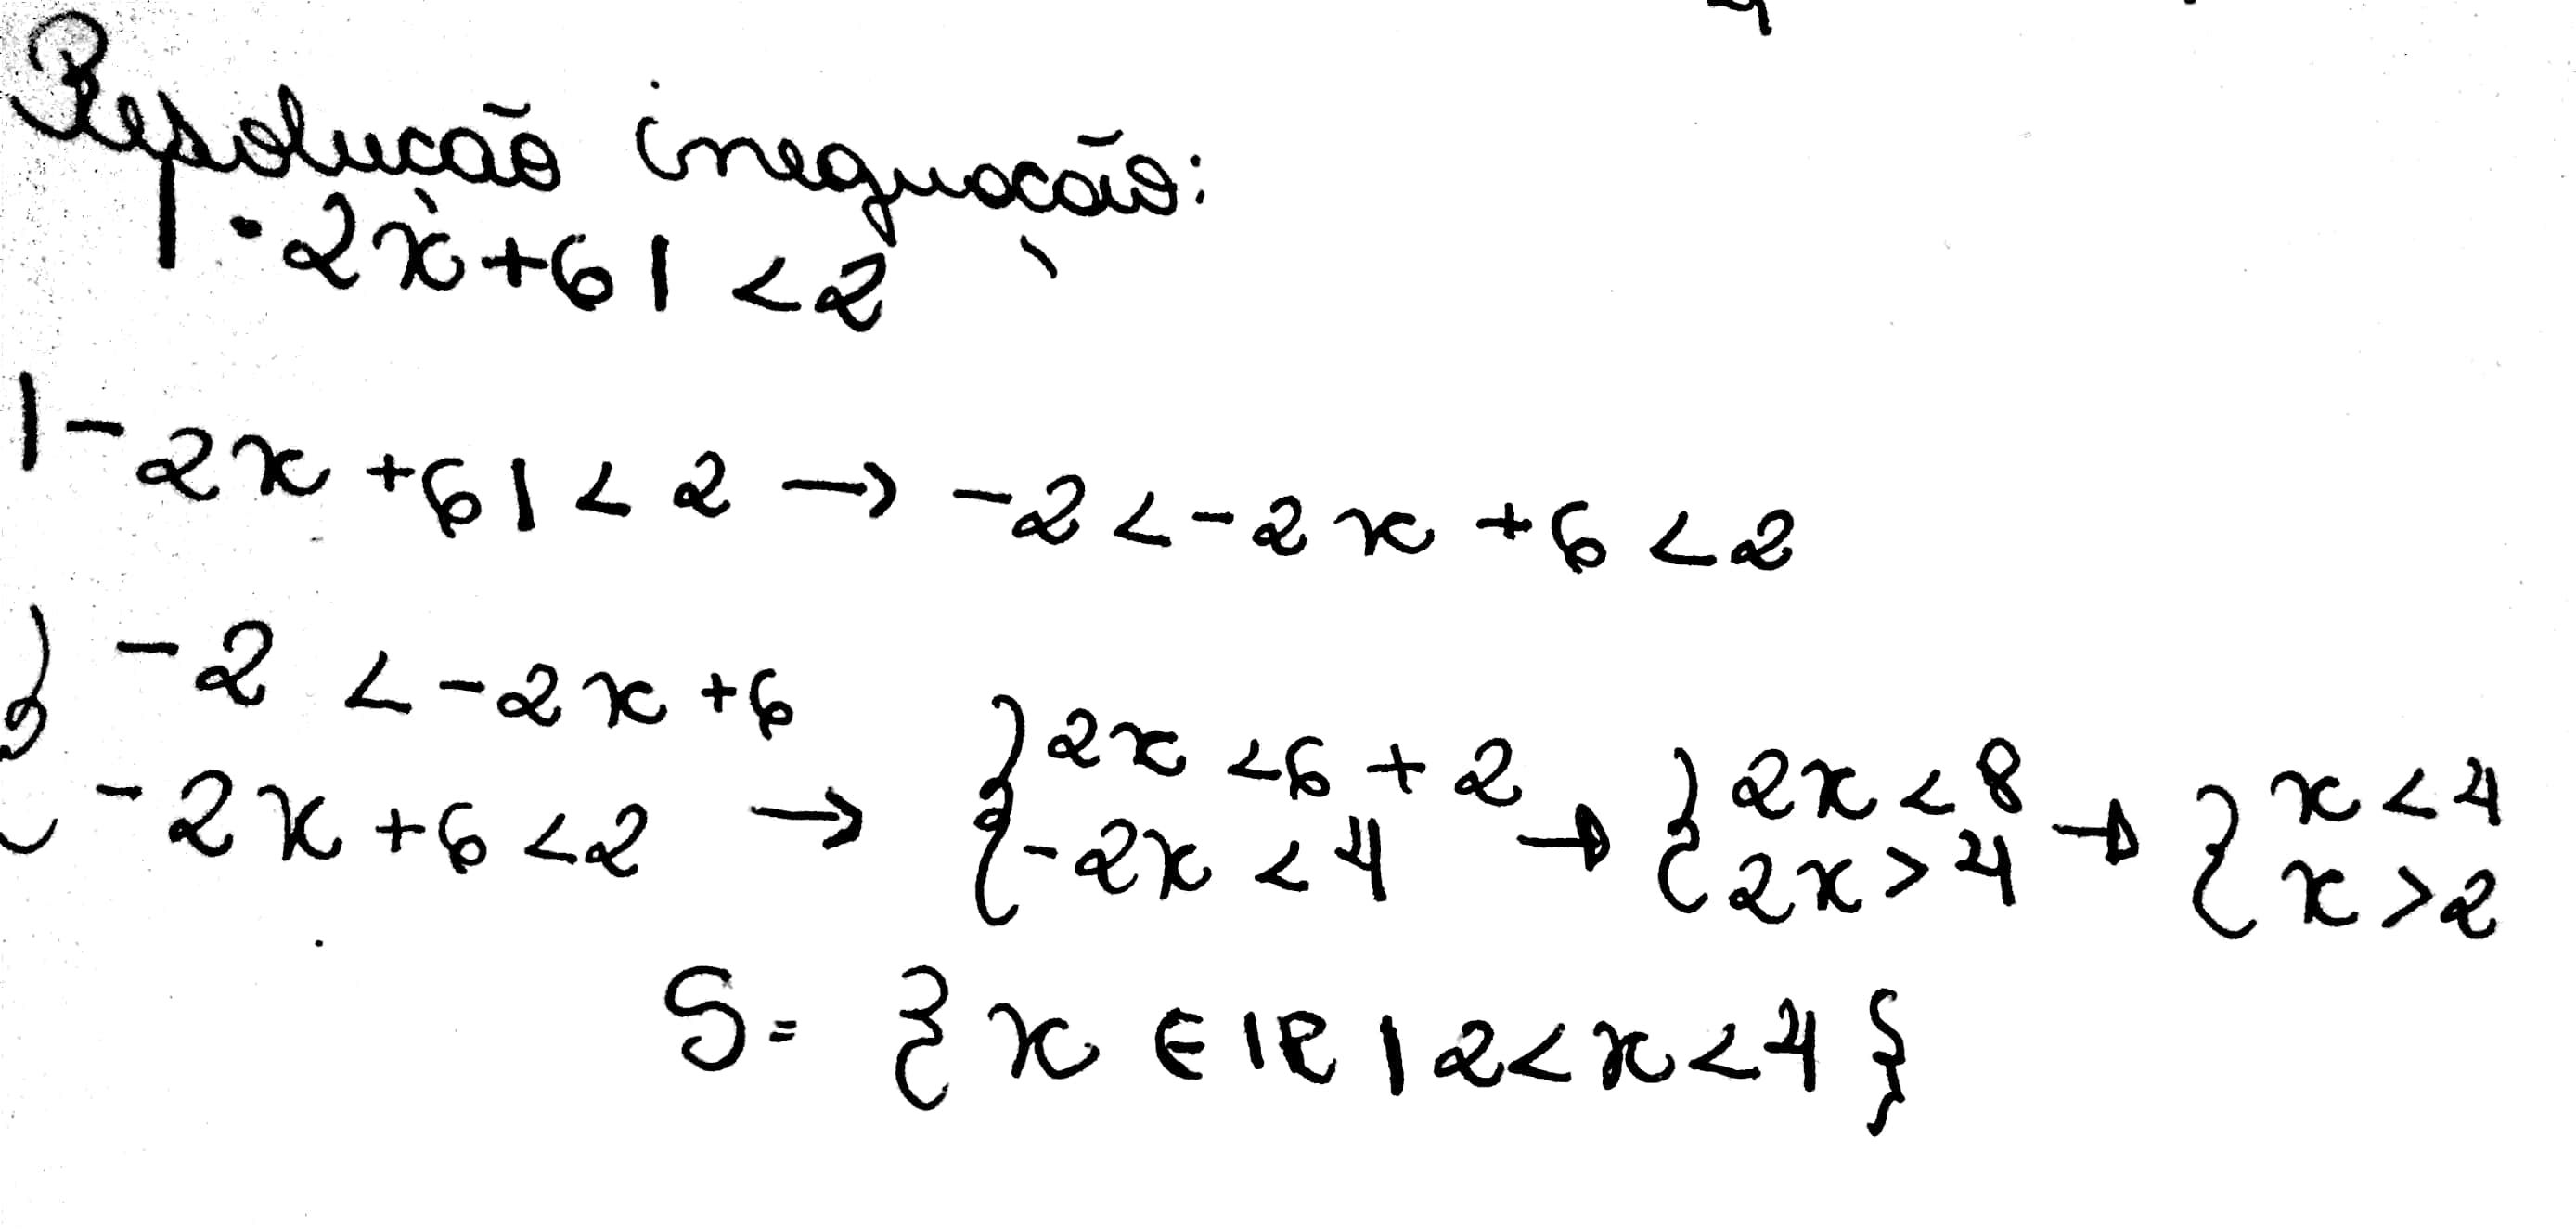 Resolução inequação:
|-2x+6| <2
|-2x+6| < 2 → -2 < -2x + 6 < 2
{ -2 < -2x +6
{ -2x+6 <2 → { 2x <6 + 2 { -2x < 4 → { 2x < 8 { 2x > 4 → { x < 4 { x > 2
S= { x ∈ IR | 2 < x < 4 }